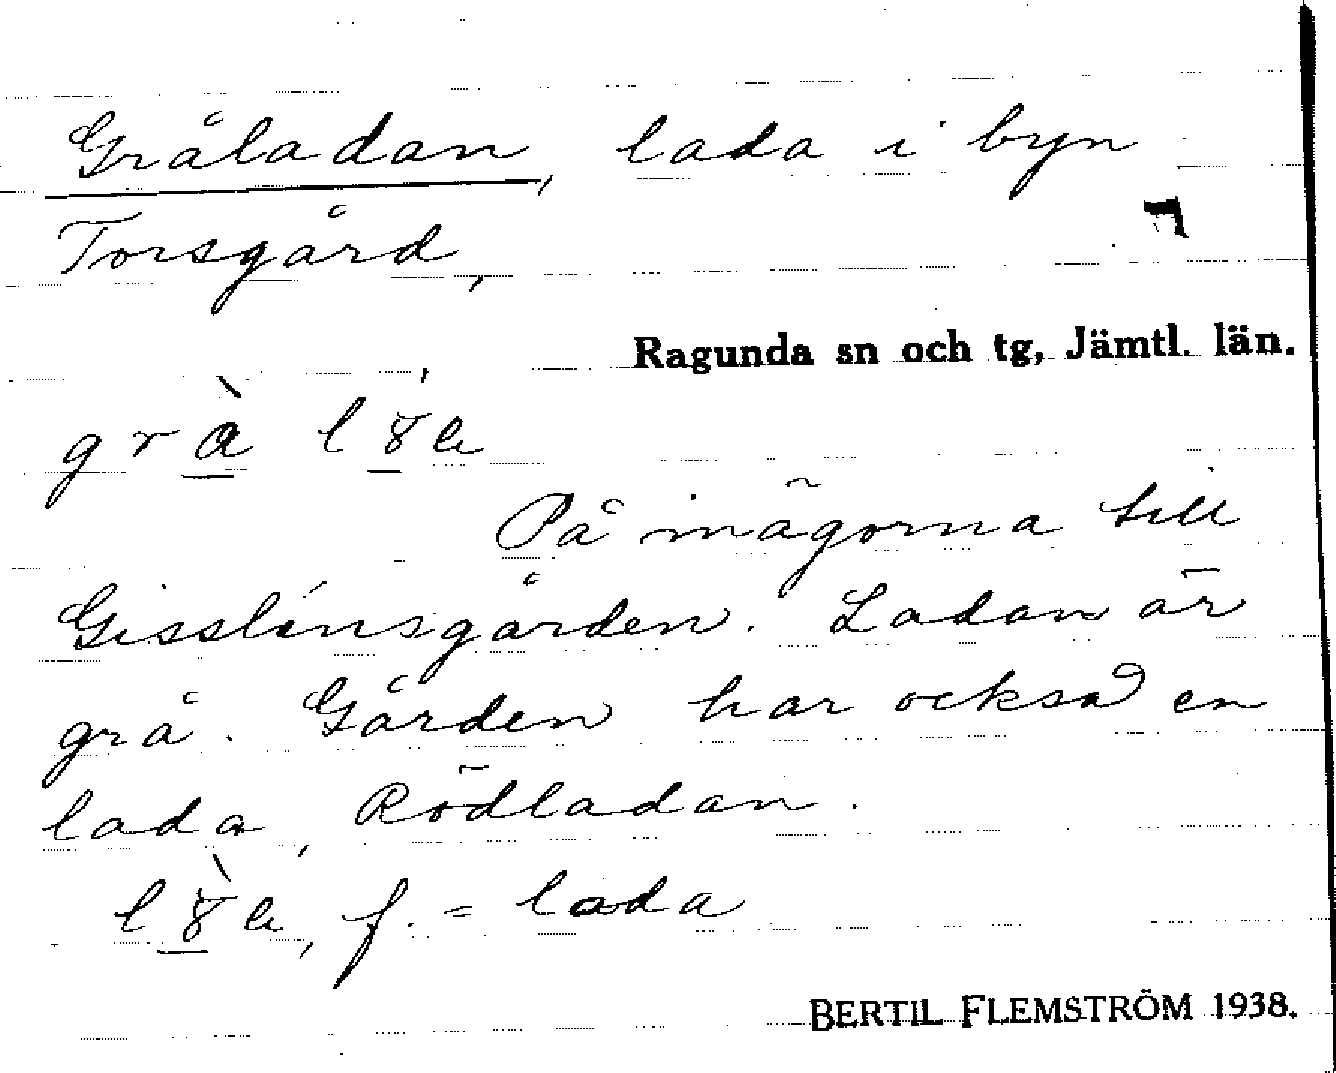 Gråladan, lada i byn
Torsgård,
Ragunda sn och tg, Jämtl. län.
På inägorna till
Gisslénsgården. Ladan är
grå. Gården har också en
lada, Rödladan.
f. = lada
BERTIL FLEMSTRÖM 1938.